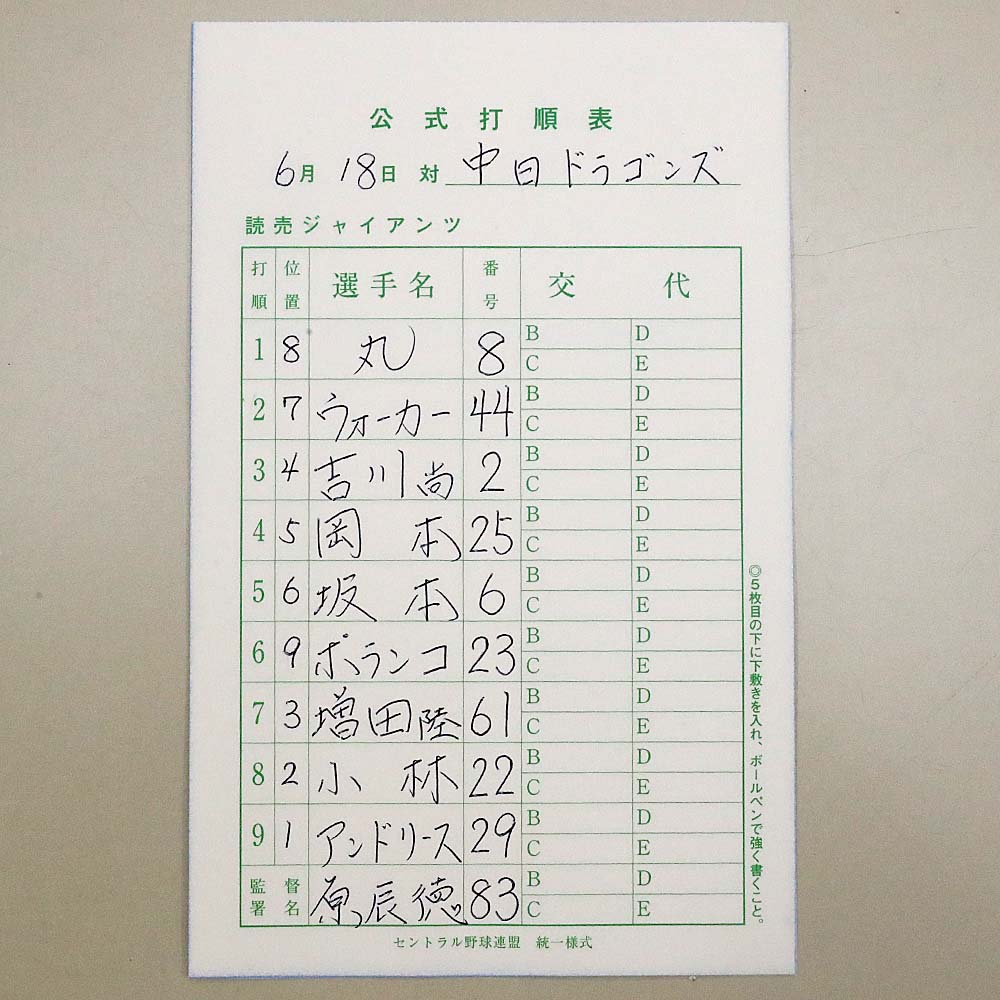 公式打順表
6月 18日 対 中日ドラゴンズ
読売ジャイアンツ
打順 位置 選手名 番号 交代
1 8 丸 8 B D
C E
2 7 ウォーカー 44 B D
C E
3 4 吉川尚 2 B D
C E
4 5 岡本 25 B D
C E
5 6 坂本 6 B D
C E
6 9 ポランコ 23 B D
C E
7 3 増田陸 61 B D
C E
8 2 小林 22 B D
C E
9 1 アンドリース 29 B D
C E
監督署名 原辰徳 83 B D
C E
セントラル野球連盟 統一様式
◎5枚目の下に下敷きを入れ、ボールペンで強く書くこと。